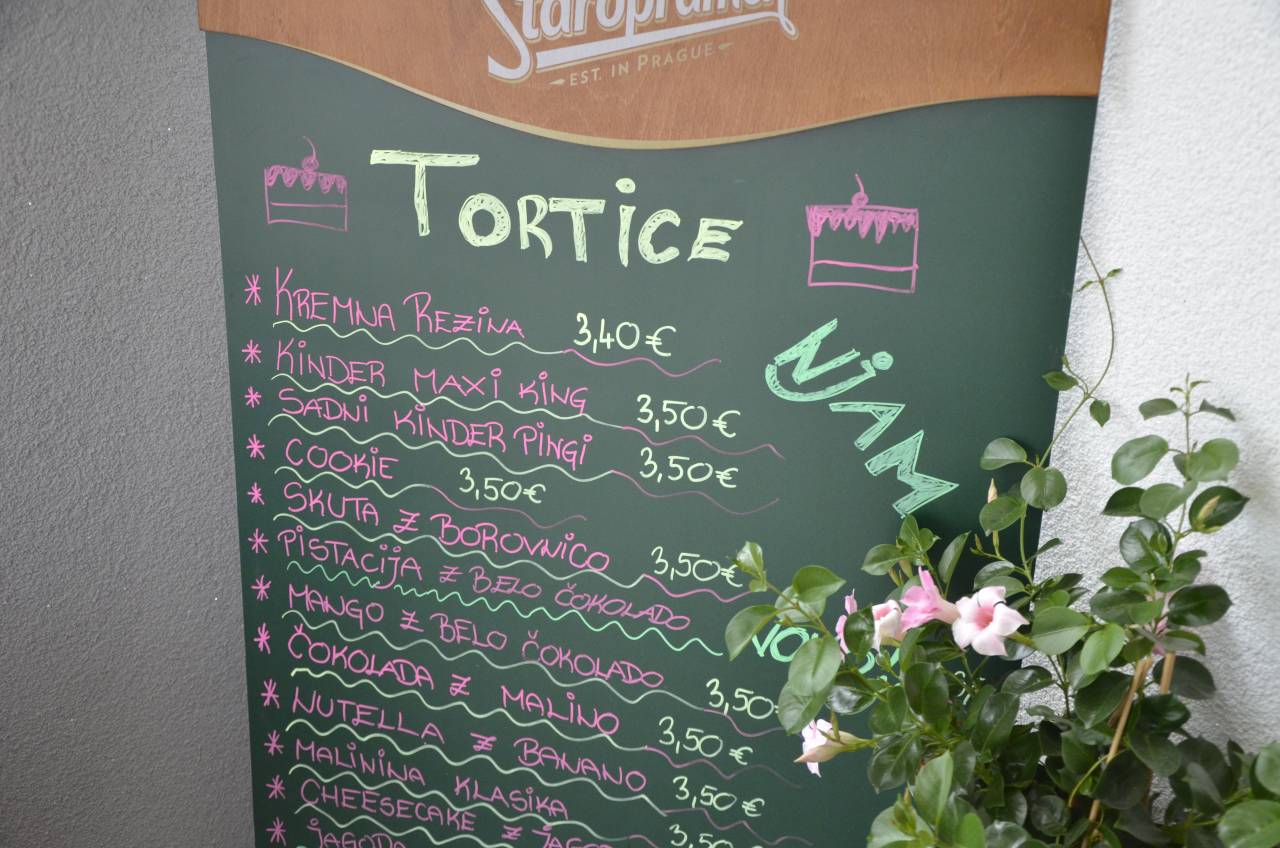 Staropramen
EST. IN PRAGUE
TORTiCE
NJAM
* KREMNA REZINA 3,40 €
* KINDER MAXI KING 3,50 €
* SADNI KINDER PINGI 3,50 €
* COOKIE 3,50 €
* SKUTA Z BOROVNICO 3,50 €
* PISTACIJA Z BELO ČOKOLADO
* MANGO Z BELO ČOKOLADO 3,50
* ČOKOLADA Z MALINO 3,50 €
* NUTELLA Z BANANO 3,50 €
* MALININA KLASIKA 3,50
* CHEESECAKE Z
* JAGODA